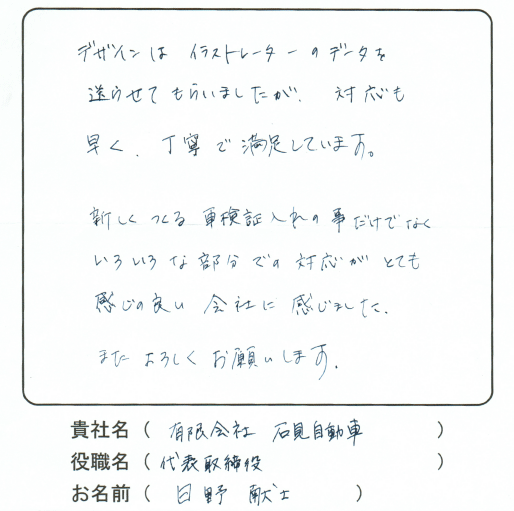 デザインは イラストレーターのデータを
送らせてもらいましたが、対応も
早く、丁寧で満足しています。
新しくつくる車検証入れの事だけでなく
いろいろな部分での対応がとても
感じの良い会社に感じました。
またよろしくお願いします。
貴社名（有限会社 石見自動車）
役職名（代表取締役）
お名前（日野 献士）